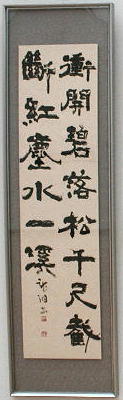 衝開碧落松千尺截
斷紅塵水一溪